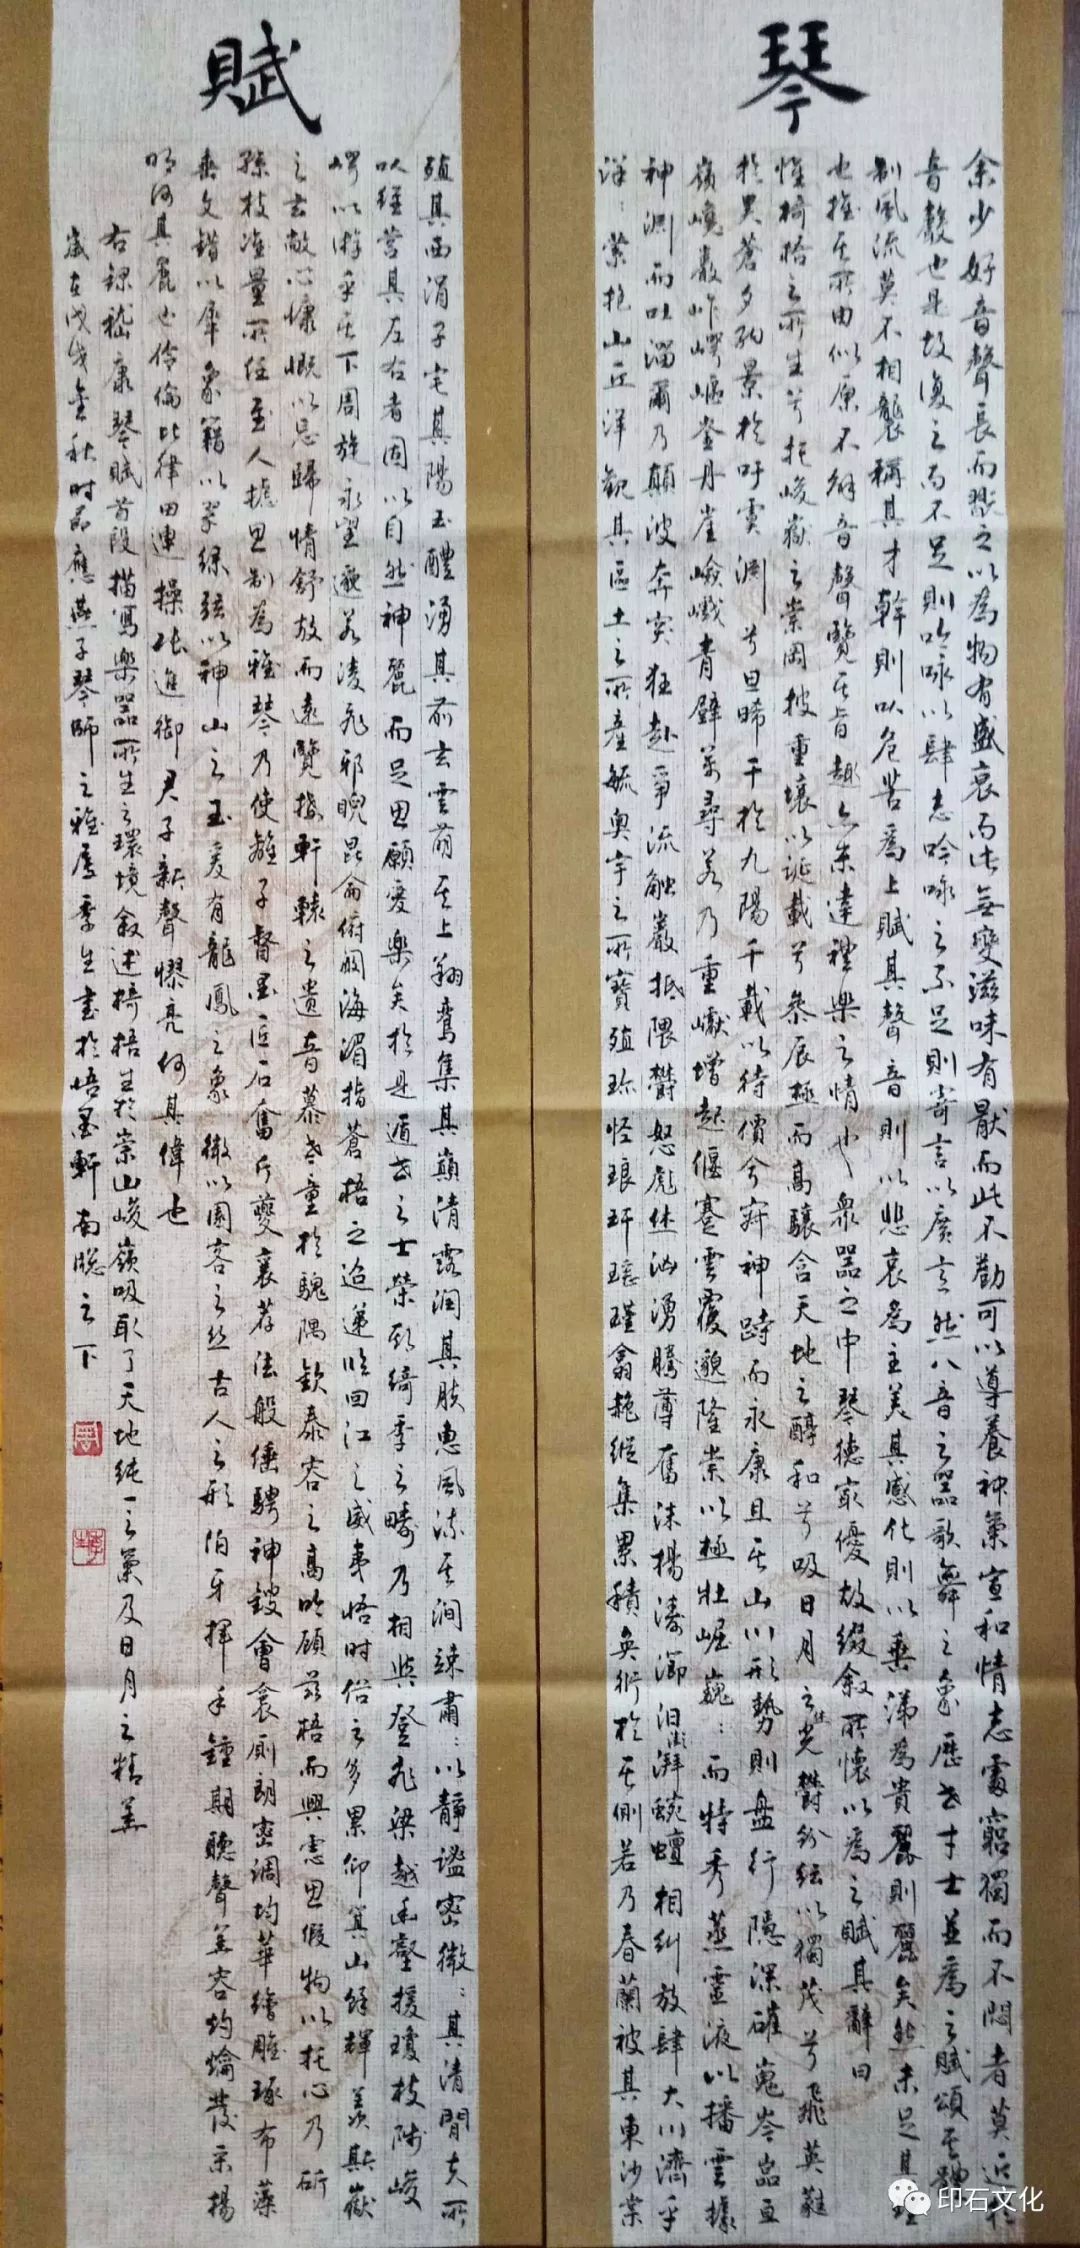 琴
余少好音聲長而翫之以為物有盛衰而此無變滋味有猒而此不勌可以導養神氣宣和情志處窮獨而不悶者莫近於
音聲也是故復之而不足則吟咏以肆志吟咏之不足則寄言以廣意然八音之器歌舞之象歷世才士並為之賦頌其體
制風流莫不相襲稱其才幹則以危苦為上賦其聲音則以悲哀為主美其感化則以垂涕為貴麗則麗矣然未足其理
也推其所由似原不解音聲覽其旨趣亦未達禮樂之情也衆器之中琴德最優故綴叙所懷以為之賦其辭曰
惟椅梧之所生兮托峻嶽之崇岡披重壤以誕載兮參辰極而高驤含天地之醇和兮吸日月之休光鬱紛紜以獨茂兮飛英蕤
於昊蒼夕納景於吁虞淵兮旦晞干於九陽千載以待價兮寂神跱而永康且其山川形勢則盤行隱深確嵬岑嵓亘
嶺巉巖岞崿嶇崟丹崖嶮巇青壁萬尋若乃重巘增起偃蹇雲覆邈隆崇以極壯崛巍：而特秀蒸靈液以播雲據
神淵而吐溜爾乃顛波奔突狂赴爭流觸巖抵隈鬱怒彪休洶湧騰薄奮沫揚濤瀄汩澎湃蜿蟺相糾放肆大川濟乎
洋：縈抱山丘洋觀其區土之所產毓奧宇之所寶殖珍怪琅玕瑤瑾翕赩縱集累積奐衍於其側若乃春蘭被其東沙棠
賦
殖其西涓子宅其陽玉醴湧其前玄雲蔭其上翔鸞集其巔清露潤其膚惠風流其澗竦肅：以靜謐密微：其清閒夫所
以經營其左右者固以自然神麗而足思願愛樂矣於是遁世之士榮期綺季之疇乃相與登飛梁越幽壑援瓊枝陟峻
崿以游乎其下周旋永望邈若凌飛邪睨昆侖俯闞海湄指蒼梧之迢遞臨回江之威夷悟時俗之多累仰箕山餘輝羨斯嶽
之玄敞心慷慨以忘歸情舒放而遠覽接軒轅之遺音慕老童於騩隅欽泰容之高吟顧茲梧而興慮思假物以托心乃斫
孫枝准量所任至人攄思制為雅琴乃使離子督墨匠石奮斤夔襄荐法般倕騁神鎪會裛廁朗密調均華繪雕琢布藻
垂文錯以犀象籍以翠綠弦以神山之玉爰有龍鳳之象徽以園客之絲古人之形伯牙揮手鍾期聽聲華容灼爚發采揚
明何其麗也伶倫比律田連操張進御君子新聲憀亮何其偉也
右錄嵇康琴賦首段描寫樂器所生之環境叙述椅梧生於崇山峻嶺吸取了天地純一之氣及日月之精華
歲在戊戌金秋時節應燕子琴師之雅屬季生書於悟墨軒南牕之下
印石文化